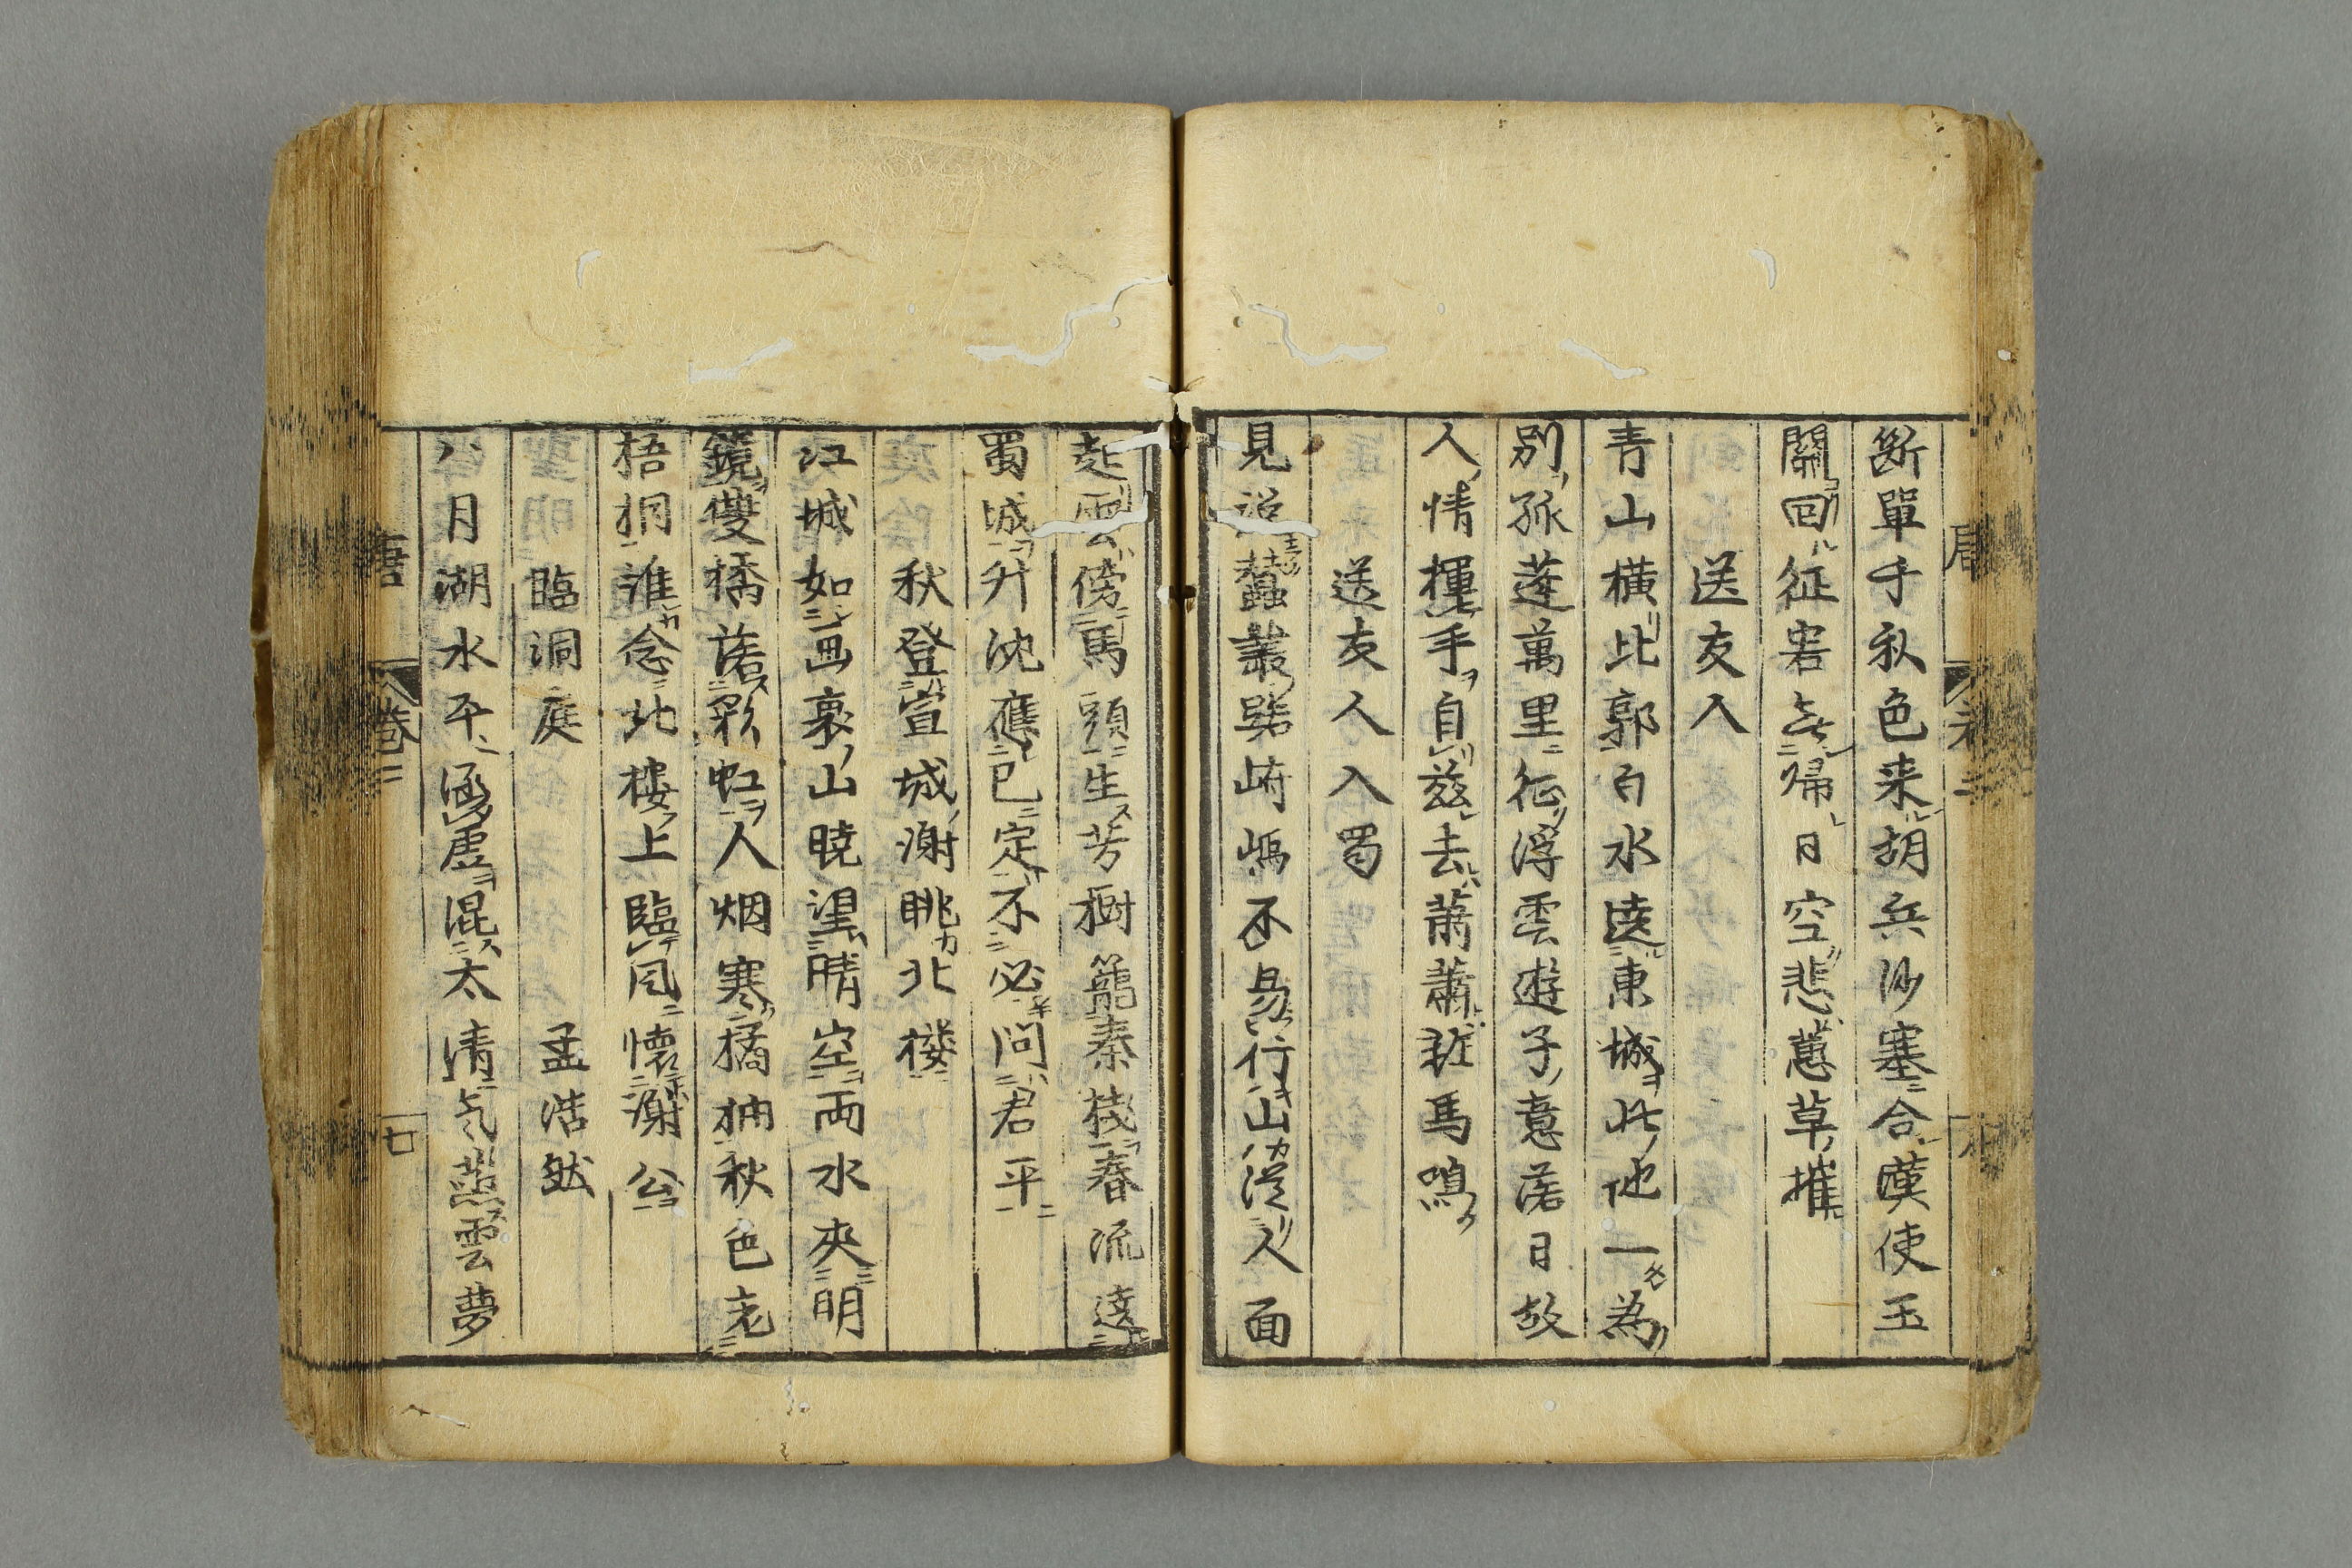 断單于秋色来胡兵沙塞合漢使玉
關回征客無帰日空悲蕙草摧
送友人
青山横北郭白水遶東城此地一為
別孤蓬萬里征浮雲遊子意落日故
人情揮手自茲去蕭蕭班馬鳴
送友人入蜀
見説蠶叢路崎嶇不易行山從人面
起雲傍馬頭生芳樹籠秦棧春流遶
蜀城升沈應已定不必問君平
秋登宣城謝眺北楼
江城如画裏山曉望晴空両水夾明
鏡雙橋落彩虹人烟寒橘柚秋色老
梧桐誰念北樓上臨风懐謝公
臨洞庭 孟浩然
八月湖水平涵虚混太清气蒸雲夢
唐 卷二 七